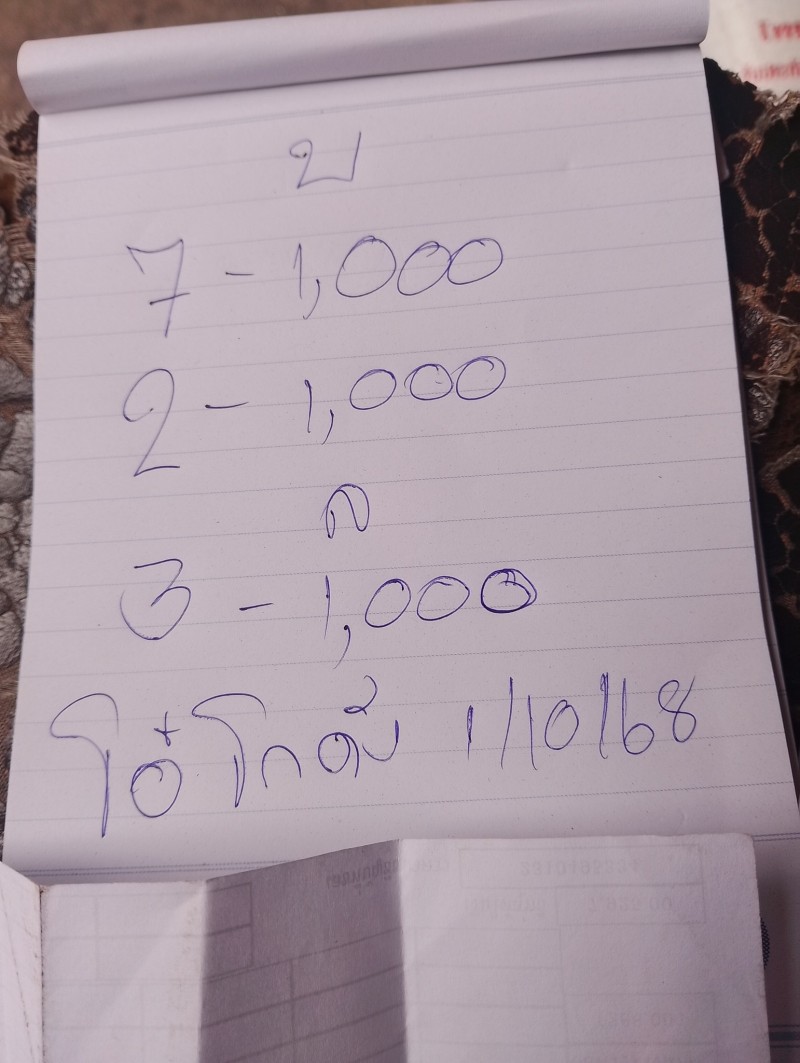 บ
7 - 1,000
2 - 1,000
ล
3 - 1,000
โอ๋ โกดัง 1/10/68